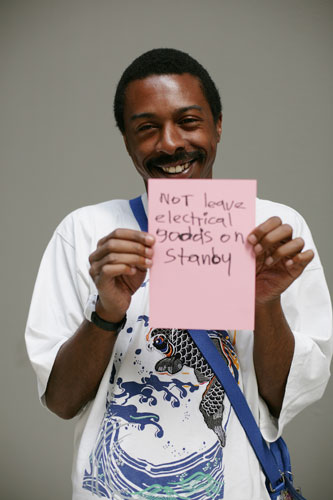 NOT leave
electrical
goods on
Stanby